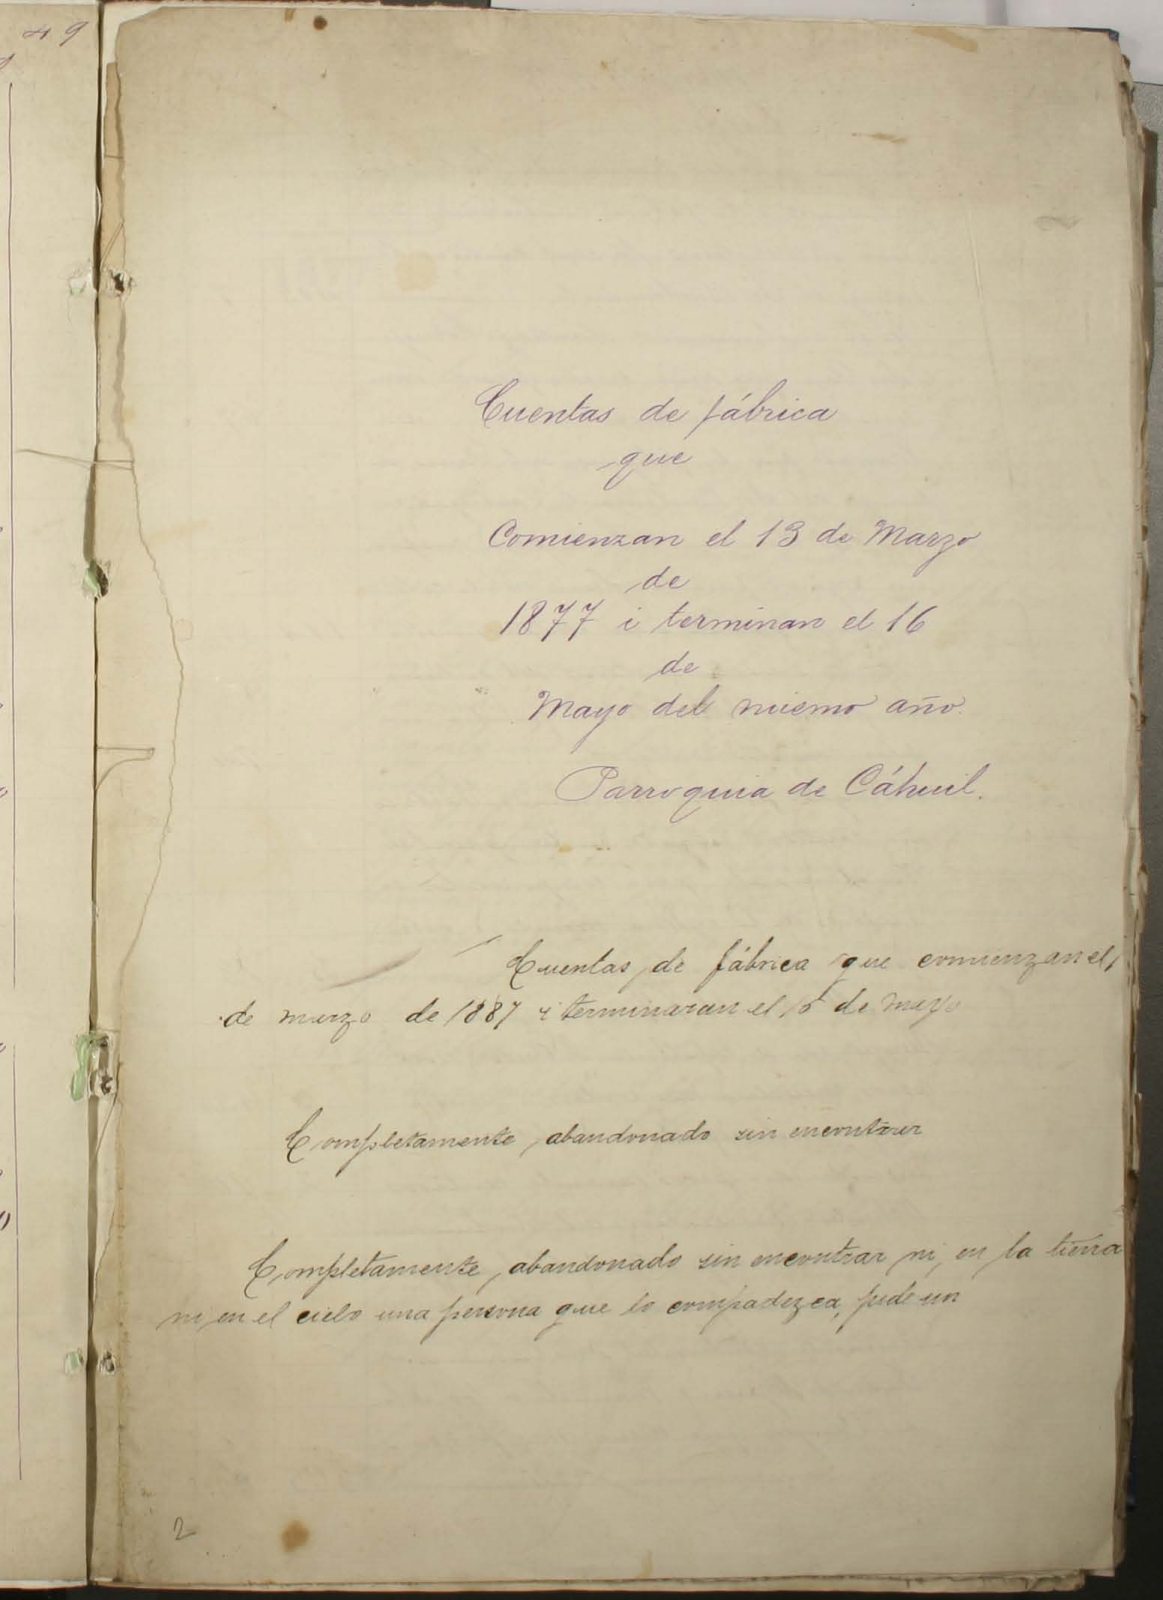 49
Cuentas de fábrica
que
Comienzan el 13 de Marzo
de
1877 i terminan el 16
de
Mayo del mismo año.
Parroquia de Cáhuil.
Cuentas de fábrica que comienzan el
de marzo de 1887 i terminaran el de mayo
Completamente abandonado sin encontrar
Completamente abandonado sin encontrar ni en la tierra
ni en el cielo una persona que lo compadezca, pude un
2